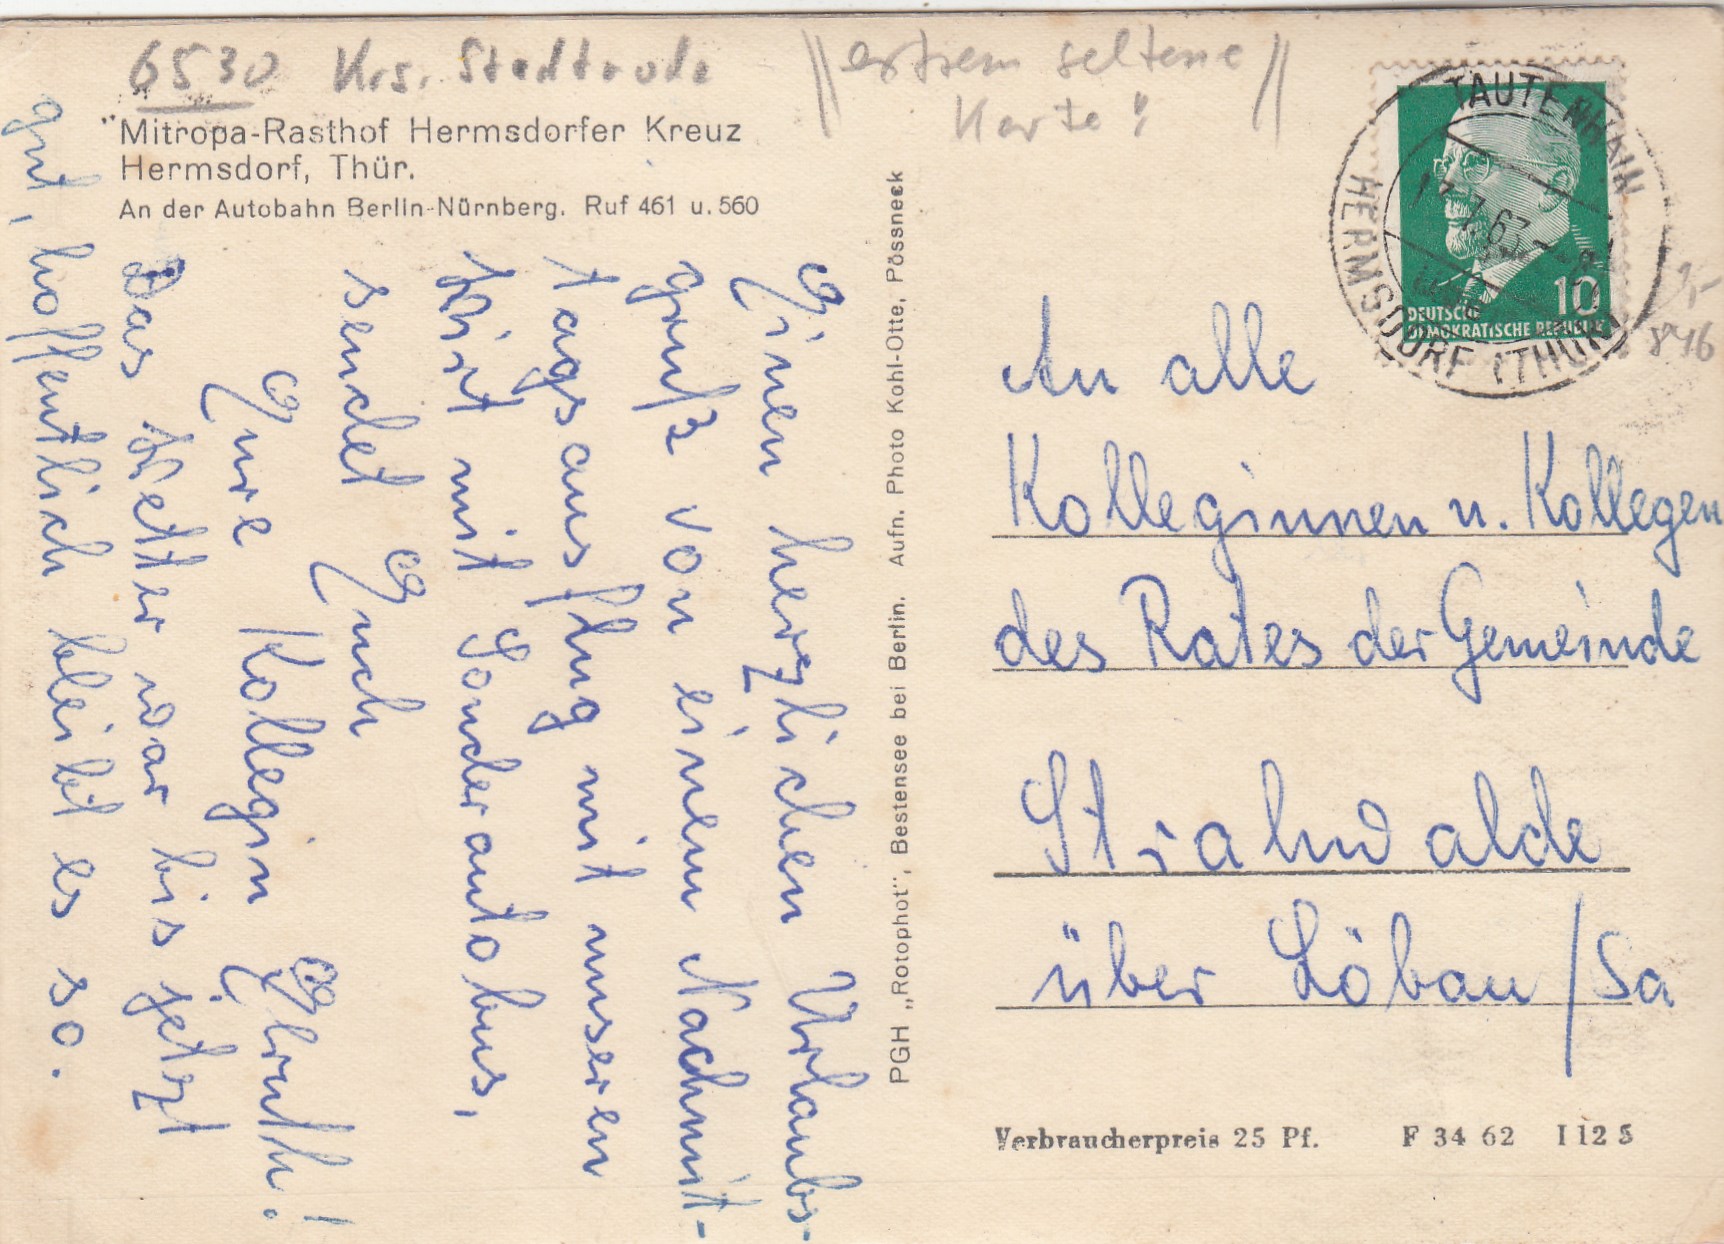 6530 Krs. Stadtroda
extrem seltene
Karte!
"Mitropa-Rasthof Hermsdorfer Kreuz
Hermsdorf, Thür.
An der Autobahn Berlin-Nürnberg. Ruf 461 u. 560
Einen herzlichen Urlaubs-
gruß von einem Nachmit-
tagsausflug mit unseren
Wirt mit Sonderautobus,
sendet Euch
Eure Kollegin
Das Wetter war bis jetzt
gut, hoffentlich bleibt es so.
PGH „Rotophot", Bestensee bei Berlin. Aufn. Photo Kohl-Otte, Pössneck
TAUTENHAIN
HERMSDORF (THÜR)
7.63
10
DEUTSCHE
DEMOKRATISCHE REPUBLIK
1,-
846
An alle
Kolleginnen u. Kollegen
des Rates der Gemeinde
Strahwalde
über Löbau/Sa
Verbraucherpreis 25 Pf. F 34 62 I 12 5